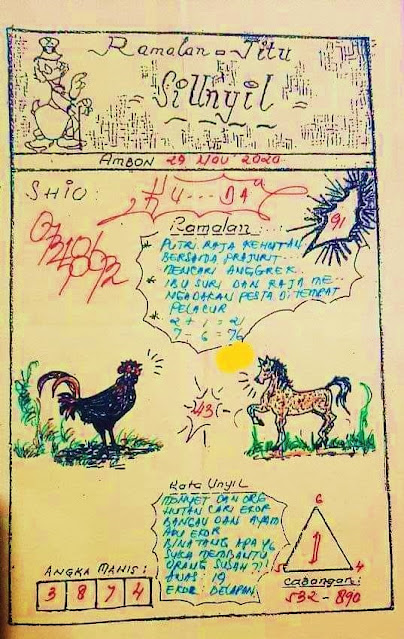 Ramalan - Jitu
Si Unyil
AMBON 29 NOV 2020
SHIO :
91
Ramalan
* PUTRI RAJA KEHUTAN
BERSAMA PRAJURIT
MENCARI ANGGREK
* IBU SURI DAN RAJA ME
NGADAKAN PESTA DITEMPAT
PELACUR
* 2 + 1 = 21
7 - 6 = 76
43
Kata Unyil
MONYET DAN ORG
HUTAN CARI EKOR
BANGAU DAN AYAM
ADU EKOR
BINATANG APA YG
SUKA MEMBANTU
ORANG SUSAH ?!
AWAS : 19
EKOR : DELAPAN
ANGKA MANIS :
3 8 7 4
6
1
5 4
Cabangan :
532 - 890